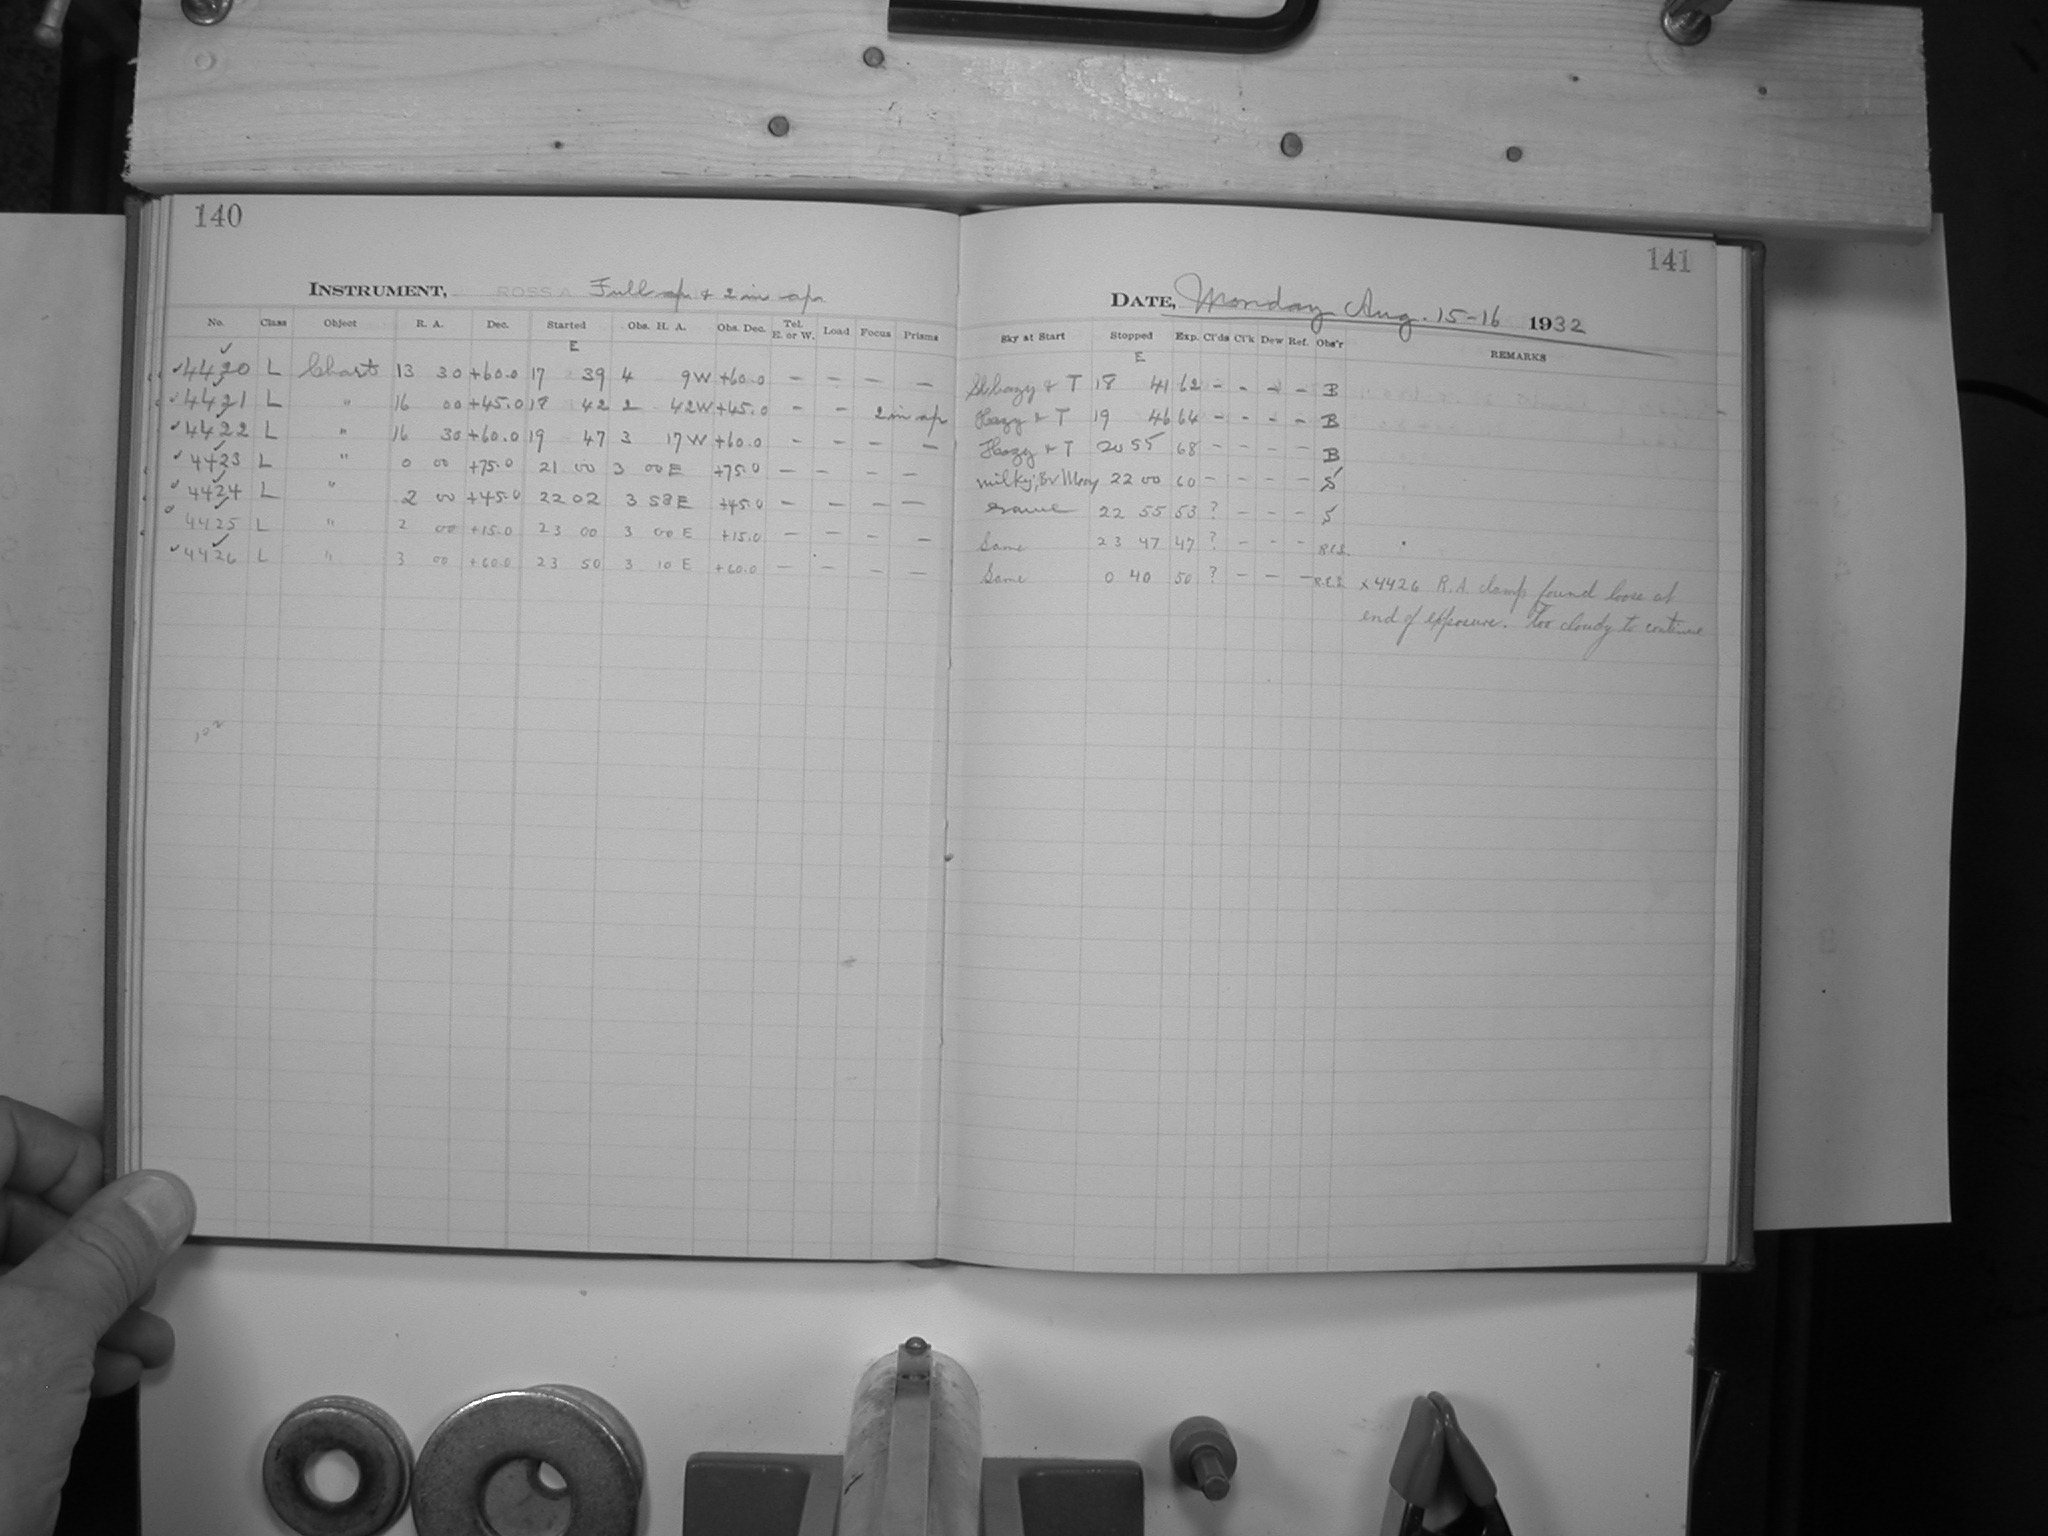 140
INSTRUMENT, ROSS A Full ap & 2 in ap
No. Class Object R. A. Dec. Started Obs. H. A. Obs. Dec. Tel. E. or W. Load Focus Prisms
E
✓4420 L Chart 13 30 +60.0 17 39 4 9W +60.0 – – – –
✓4421 L " 16 00 +45.0 18 42 2 42W +45.0 – – 2 in ap
✓4422 L " 16 30 +60.0 19 47 3 17W +60.0 – – – –
✓4423 L " 0 00 +75.0 21 00 3 00 E +75.0 – – – –
✓4424 L " 2 00 +45.0 22 02 3 58 E +45.0 – – – –
4425 L " 2 00 +15.0 23 00 3 00 E +15.0 – – – –
✓4426 L " 3 00 +60.0 23 50 3 10 E +60.0 – – – –
102
141
DATE, Monday Aug. 15-16 1932
Sky at Start Stopped Exp. Cl'ds Cl'k Dew Ref. Obs'r REMARKS
E
& T 18 41 62 – – – – B
Hazy & T 19 46 64 – – – – B
Hazy & T 20 55 68 – – – – B
milky, Br. Moon 22 00 60 – – – – S
same 22 55 53 ? – – – S
Same 23 47 47 ? – – –
Same 0 40 50 ? – – – x4426 R.A. clamp found loose at
end of exposure. Too cloudy to continue